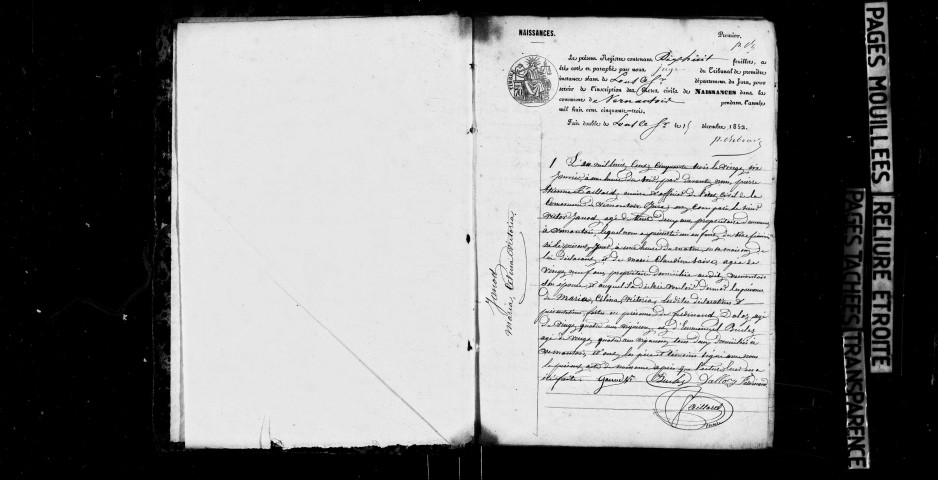 NAISSANCES.
Premier.
Le présent Registre contenant Dix huit feuilles, a
été coté et paraphé par nous juge du Tribunal de première
instance séant de Lons le S.r département du Jura, pour
servir de l'inscription des Actes civils de NAISSANCES dans la
commune de Vernantois pendant l'année
mil huit cent cinquante-trois.
Fait double de Lons le S.r le 15 décembre 1852.
1 L'an mil huit Cent Cinquante trois le vingt six
janvier à une heure du soir, par devant nous, pierre
étienne Gaillard, maire et officier de l'état civil de la
Commune de Vernantois Jura, est Comparu le sieur
Victor Janod, agé de trente deux ans propriétaire demeurant
à Vernantois, lequel nous a présenté un enfant du sexe féminin
né le présent jour à une heure du matin, en sa maison de
lui déclarant, et de marie Claudine agée de
vingt neuf ans propriétaire domiciliée audit Vernantois
son épouse, et auquel il a déclaré vouloir donner les prénoms
de Maria, Célina, Victoria, lesdites déclaration et
présentation faites en présence de ferdinand Daloz agé
de vingt quatre ans vigneron, et d'Emmanuel
agé de vingt quatre ans vigneron, tous deux domiciliés à
Vernantois, et ont les père et témoins signé avec nous
le présent acte de naissance après que lecture leur en a
été faite. Daloz Ferdinand
Gaillard
maire
Janod
Maria, Célina Victoria
PAGES MOUILLEES RELIURE ETROITE
PAGES TACHEES TRANSPARENCE